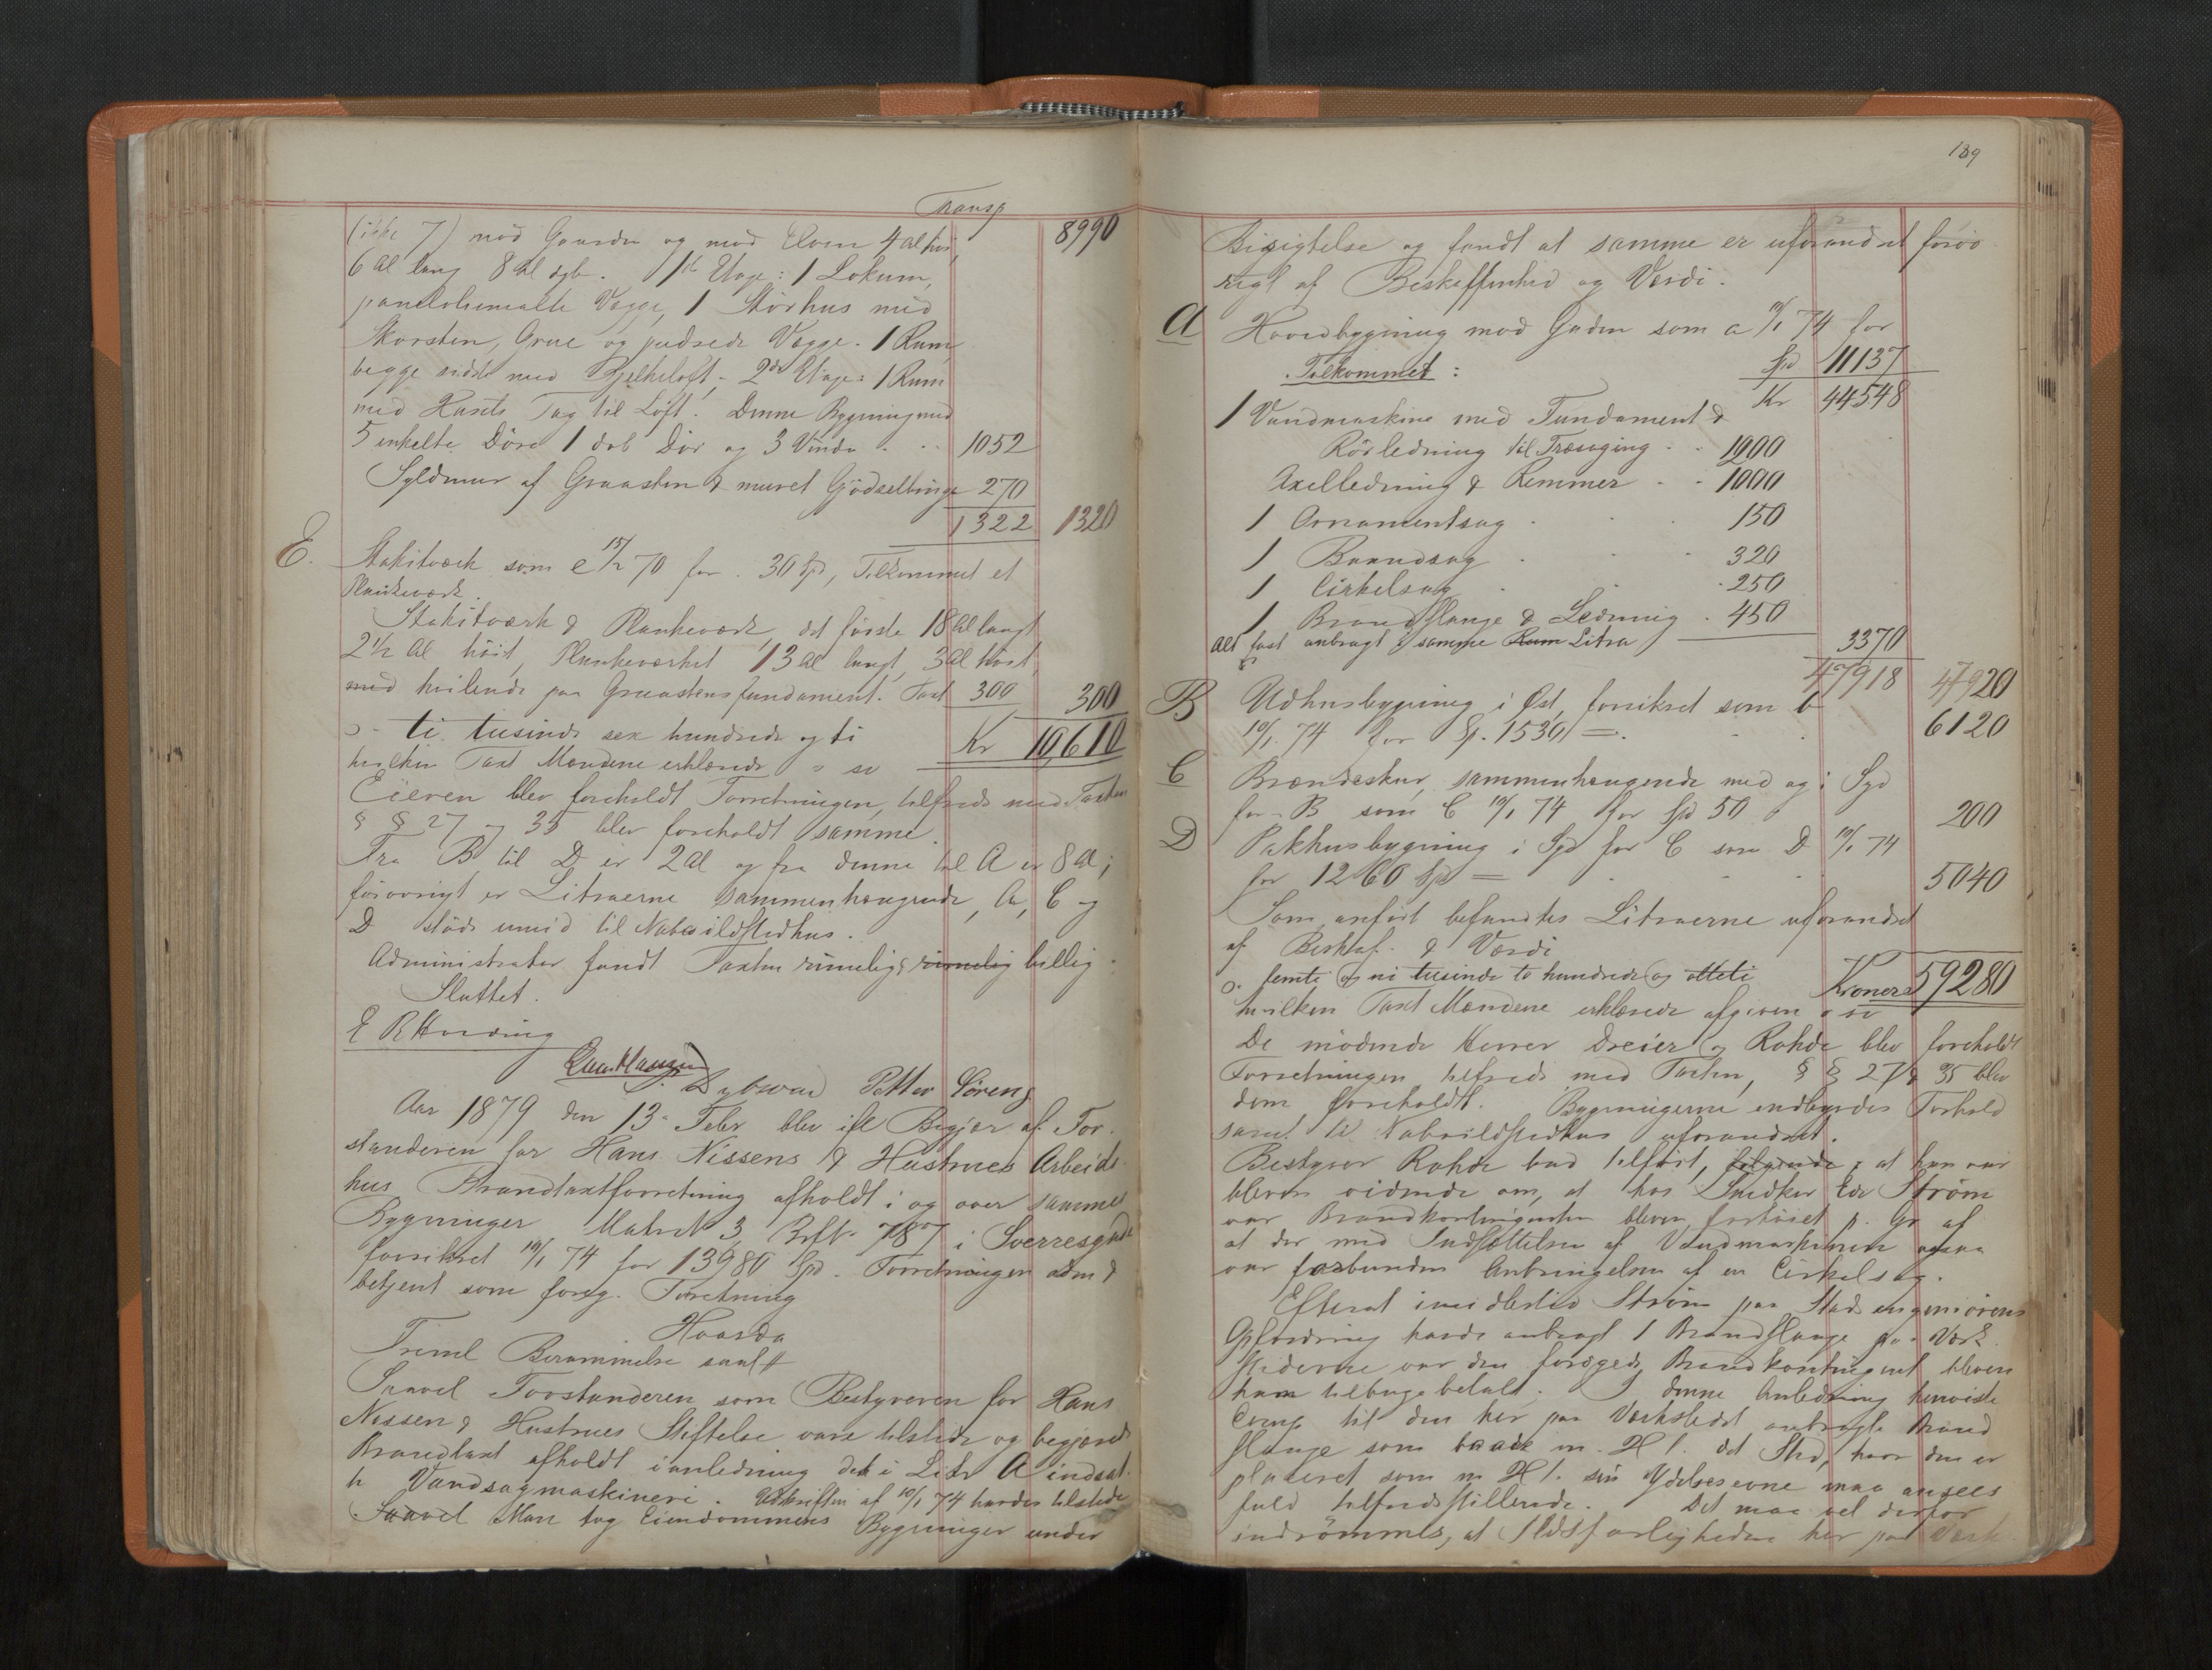 Transp
(ikke 7) mod Gaarden og mod Elven 4 al høi 8990
6 al lang 8 al dyb. 1ste Etage: 1 Lokum,
panelolienmalte Vægge, 1 Størhus med
Skorsten, Grue og pudsede Vægge. 1 Rum
begge sidste med Bjelkeloft. 2den Etage: 1 Rum
med Husets Tag til Loft. Denne Bygning med
5 enkelte Døre 1 dob Dør og 3 Vindu 1052
Syldmur af Graasten & muret Gjødselbinge 270
1322 1320
E. Stakitværk som e 15/2 70 for 30 Spd, Tilkommet et
Plankeværk.
Stakitværk & Plankeværk, det første 18 al langt
2 1/2 al høit, Plankeværket 13 al langt, 3 al høit
med hvilende paa Graastensfundament. Taxt 300 300
ti tusinde sex hundrede og ti Kr 10,610
hvilken Taxt Mændene erklærede
Eieren blev foreholdt Forretningen, tilfreds med Taxten
§ § 27 og 35 blev foreholdt samme.
Fra B til D er 2 al og fra denne til A er 8 al;
forøvrigt er Litraerne sammenhængende, A, C og
D støde umid til Naboildstedhus.
Administrator fandt Taxten rimelig & rimelig billig.
Sluttet.
E R Hvoding
L. Dybwad Petter Loreng
Aar 1879 den 13 Febr blev ifl Begjær af For-
standeren for Hans Nissens & Hustrues Arbeids
hus Brandtaxtforretning afholdt i og over sammes
Bygninger Matr № 3, Brft 787 i Sverresgade
forsikret 10/1 74 for 13980 Spd. Forretningen adm &
betjent som foreg. Forretning
Hvorda
Freml Berammelse saal #
Saavel Forstanderen som Bestyreren for Hans
Nissen & Hustrues Stiftelse vare tilstede og begjærede
Brandtaxt afholdt i anledning det i Litr A indsat-
te Vandsagmaskineri. Udskriften af 10/1 74 havdes tilstede
Saavel Man tog Eiendommens Bygninger under
189
Besigtelse og fandt at samme er uforandret forøv-
rigt af Beskaffenhed og Værdi.
A Hovedbygning mod Gaden som a 10/1 74 for
Spd 11137
Tilkommet: Kr 44548
1 Vandmaskine med Fundament &
Rørledning til Træsaging 1200
Axelledning & Remmer 1000
1 Ornamentsag 150
1 Baandsag 320
1 Cirkelsag 250
1 Brandslange & Ledning 450
Alt fast anbragt i samme Rum Litra 3370
47918 47920
B Udhusbygning i Øst, forsikret som b
10/1 74 for Sp. 1530 = 6120
C Brændeskur, sammenhængende med og i Syd
for B som C 10/1 74 for Spd 50 200
D Pakhusbygning i Syd for C som D 10/1 74
for 1260 Spd = 5040
Som anført befandtes Litraerne uforandret
af Beskaf. & Værdi
femti og ni tusinde to hundrede og otteti Kroner 59280
hvilken Taxt Mændene erklærede afgiven
De mødende Herrer Dreier og Rohde blev foreholdt
Forretningen tilfreds med Taxten, § § 27 & 35 blev
dem foreholdt. Bygningerne indbyrdes Forhold
samt til Naboildstedhus uforandret.
Bestyrer Rohde bad tilført, følgende: at han var
bleven vidende om, at hos Snedker Edv Strøm
var Brandkontingenten bleven forhøiet p. Gr af
at der med Indsættelsen af Vandmaskinen ogsaa
var forbunden Anbringelsen af en Cirkelsag.
Efterat imidlertid Strøm paa Stadsingeniørens
Opfordring havde anbragt 1 Brandslange paa Værk-
stederne var den forøgede Brandkontingent bleven
ham tilbagebetalt. I denne Anledning henviste
Comp til den her paa Værkstedet anbragte Brand
slange som baade m. H t. det Sted, hvor den er
placeret som m H t. sin Ydelsesevne maa ansees
fuld tilfredsstillende. Det maa vel derfor
indrømmes, at Ildsfarligheden her paa Værk